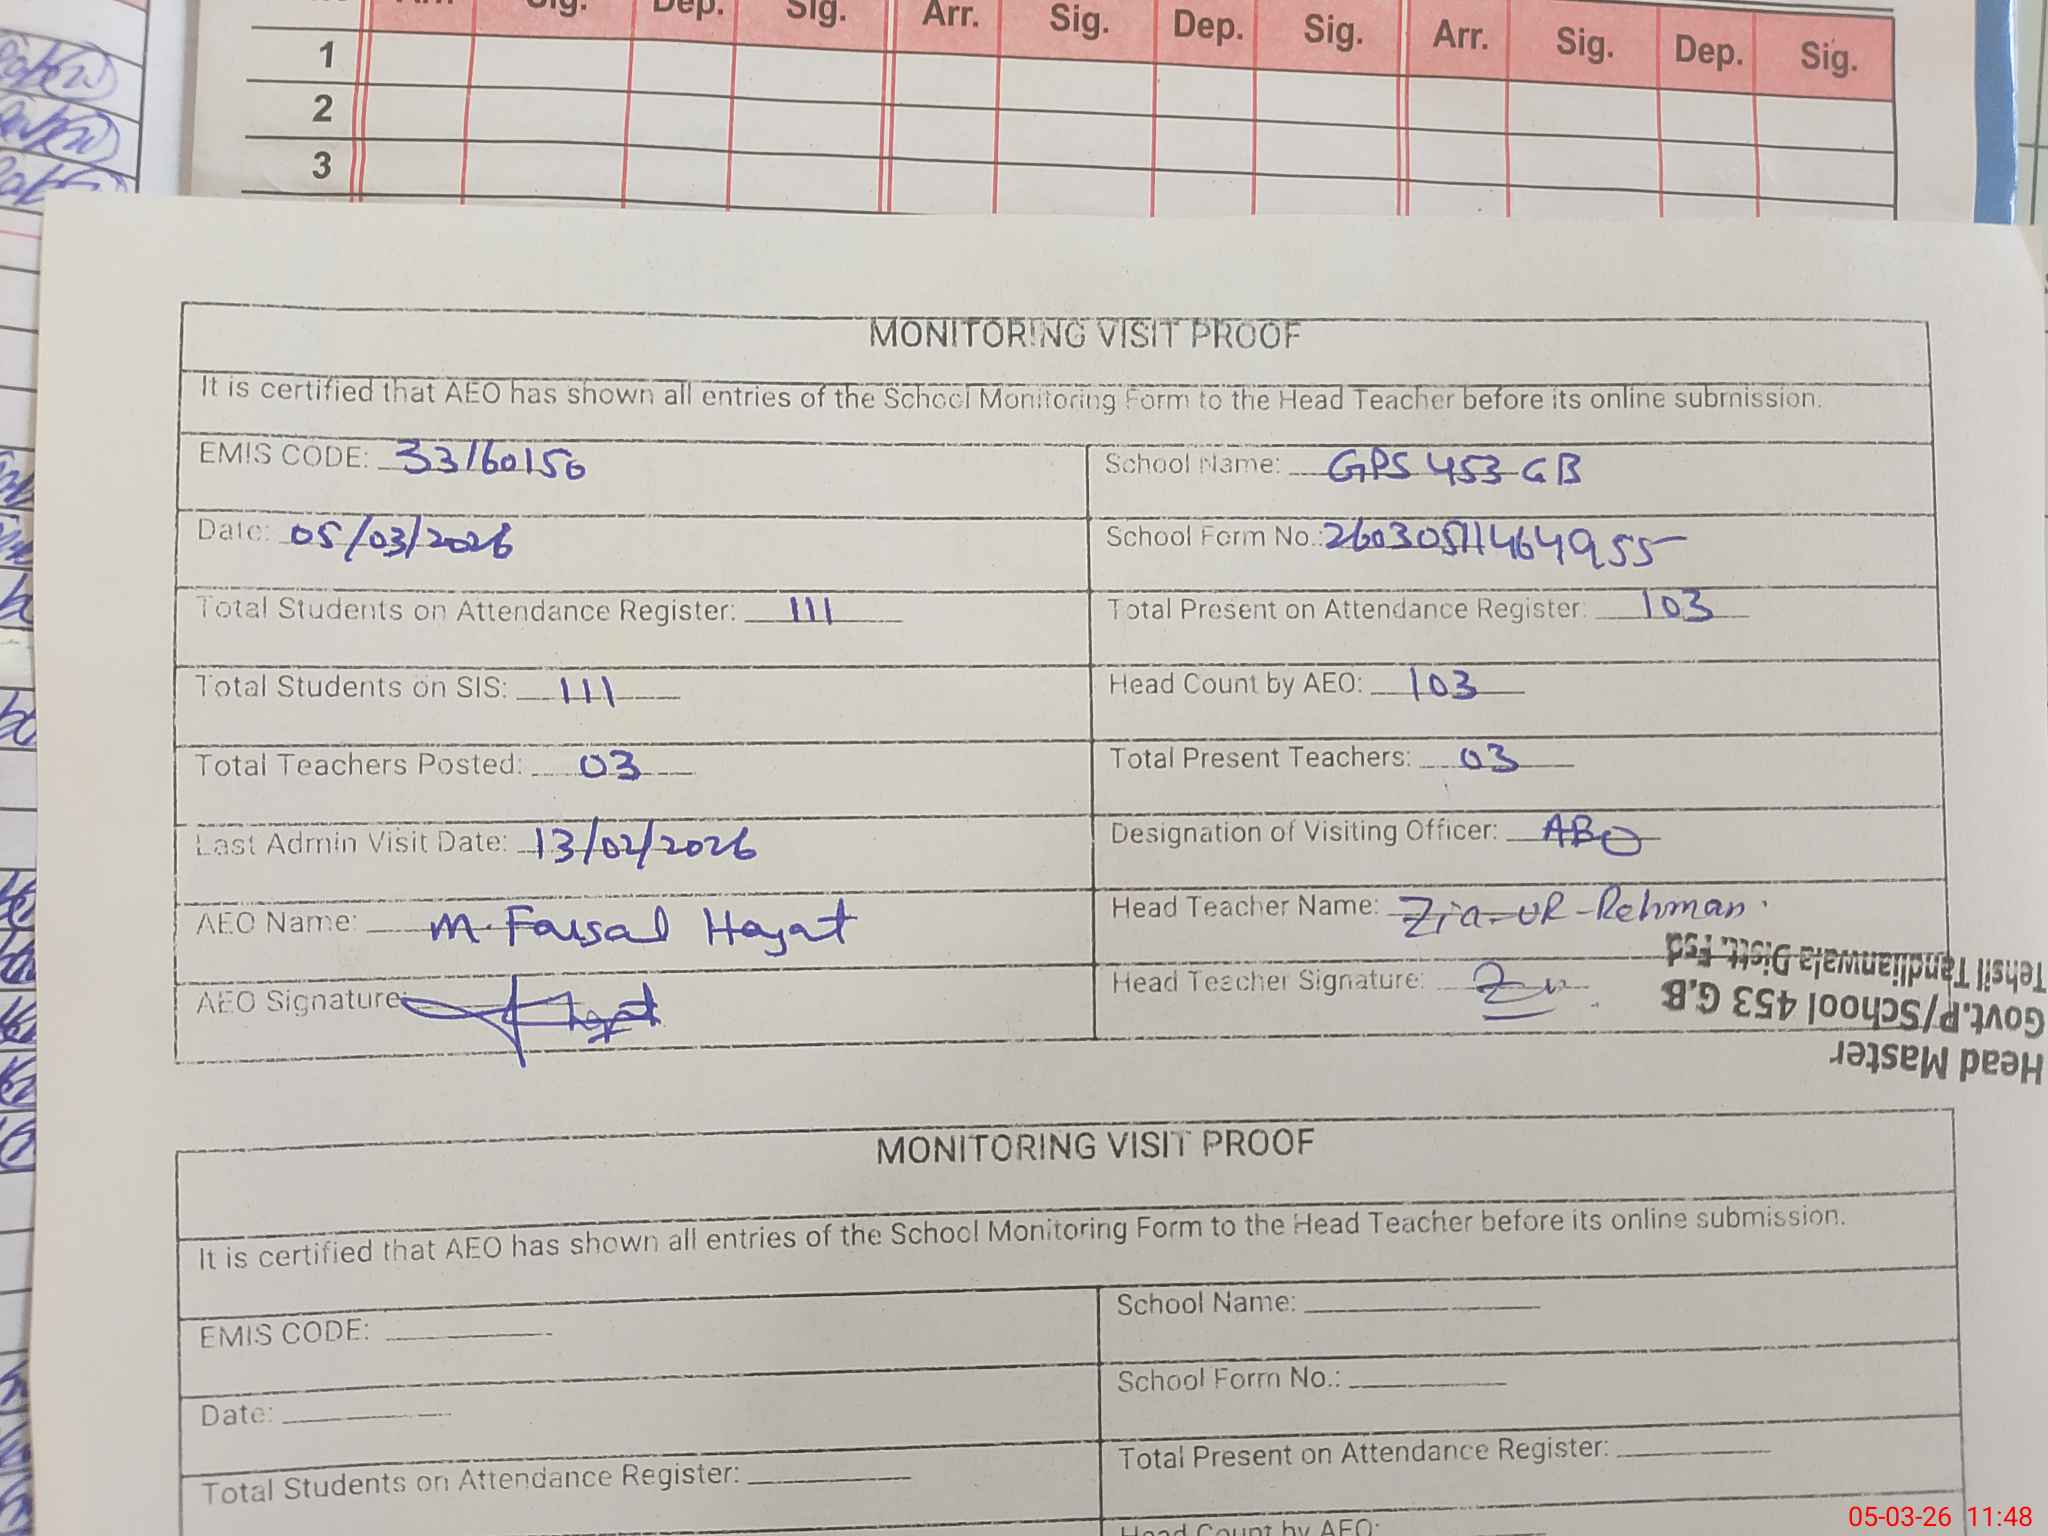 Arr. Sig. Dep. Sig. Arr. Sig. Dep. Sig. Arr. Sig. Dep. Sig.
1
2
3
MONITORING VISIT PROOF
It is certified that AEO has shown all entries of the School Monitoring Form to the Head Teacher before its online submission.
EMIS CODE: 33160150
School Name: GPS 453 GB
Date: 05/03/2026
School Form No.: 26030511464955
Total Students on Attendance Register: 111
Total Present on Attendance Register: 103
Total Students on SIS: 111
Head Count by AEO: 103
Total Teachers Posted: 03
Total Present Teachers: 03
Last Admin Visit Date: 13/02/2026
Designation of Visiting Officer: AEO
AEO Name: M. Faisal Hayat
Head Teacher Name: Zia-UR-Rehman
AEO Signature:
Head Teacher Signature:
Head Master
Govt.P/School 453 G.B
Tehsil Tandlianwala Distt. Fsd
MONITORING VISIT PROOF
It is certified that AEO has shown all entries of the School Monitoring Form to the Head Teacher before its online submission.
EMIS CODE:
School Name:
Date:
School Form No.:
Total Students on Attendance Register:
Total Present on Attendance Register:
Head Count by AEO:
05-03-26 11:48